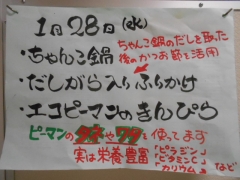 1月28日(水)
・ちゃんこ鍋
ちゃんこ鍋のだしを取った
後のかつお節を活用
・だしがら入りふりかけ
・エコピーマンのきんぴら
ピーマンのタネやワタを使ってます
実は栄養豊富
「ピラジン」
「ビタミンC」
カリウム」
など